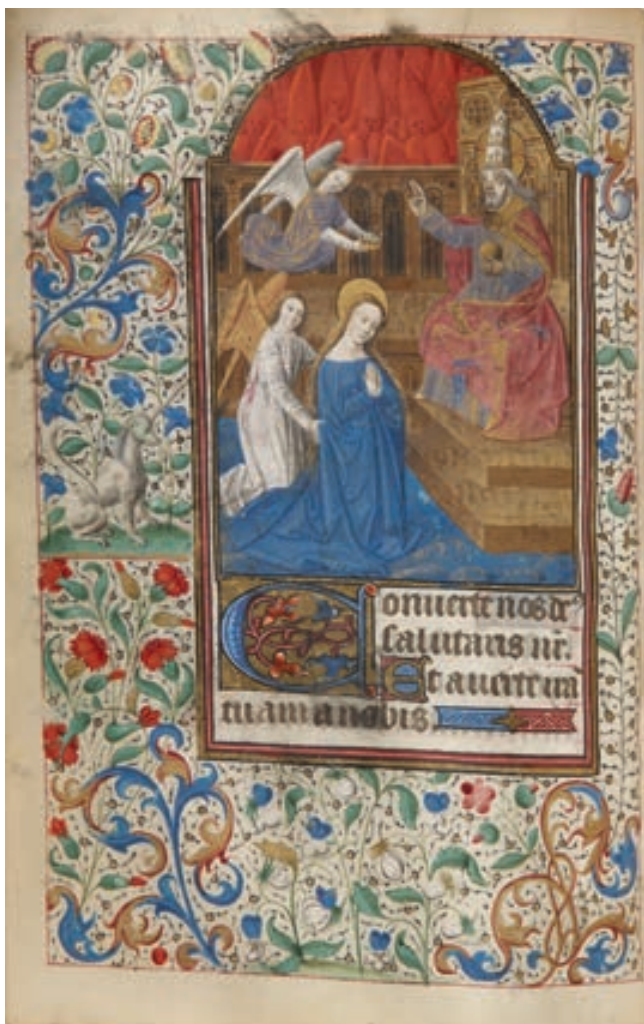 Conuerte nos d̄s
salutaris nr̄.
Et auerte irā
tuam a nobis.